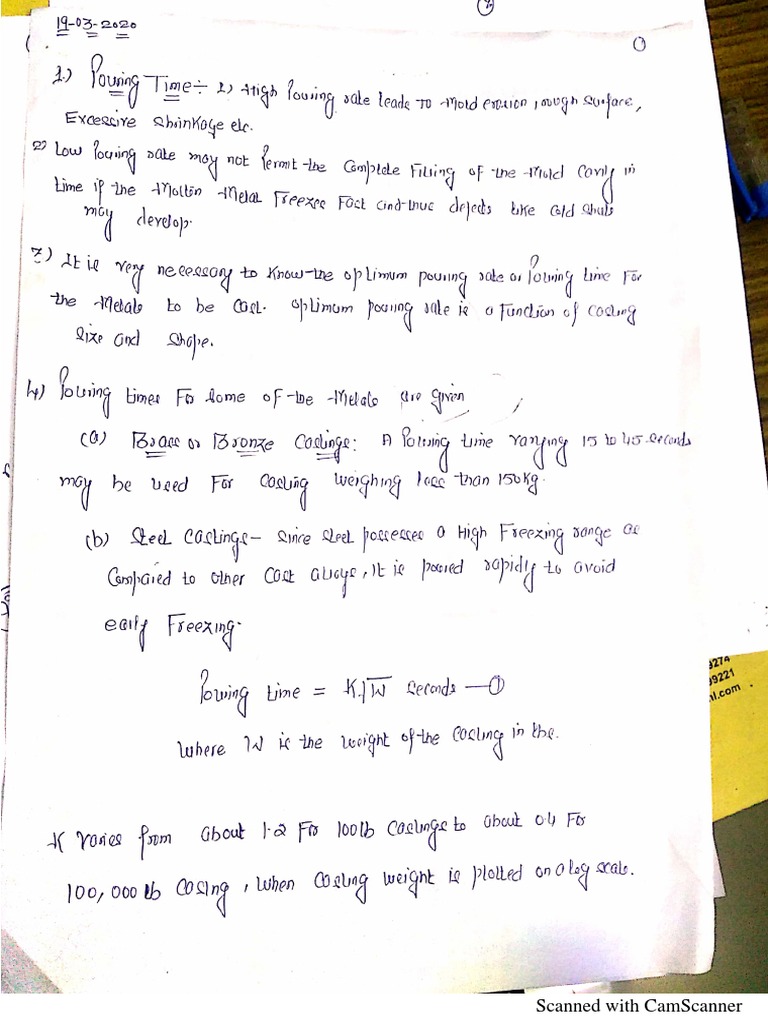 19-03-2020
1.) Pouring Time÷ 1) High Pouring rate leads to mold erosion, rough surface,
Excessive shrinkage etc.
2) Low Pouring rate may not Permit the Complete Filling of the Mold Cavity in
time if the Molten Metal Freezes Fast and thus defects like cold shuts
may develop.
3) It is very necessary to know the optimum pouring rate or Pouring time For
the Metals to be Cast. optimum pouring rate is a function of casting
size and shape.
4) Pouring times For some of the Metals are given
(a) Brass or Bronze Castings: A Pouring time ranging 15 to 45 seconds
may be used For casting weighing less than 150Kg.
(b) Steel castings- since steel possesses a High Freezing range as
Compared to other cast alloys, It is poured rapidly to avoid
early Freezing.
Pouring time = K.√W seconds —①
where W is the weight of the casting in lbs.
K varies from about 1.2 For 100lb castings to about 0.4 For
100,000 lb casing, when casting weight is plotted on a log scale.
9274
99221
il.com
Scanned with CamScanner